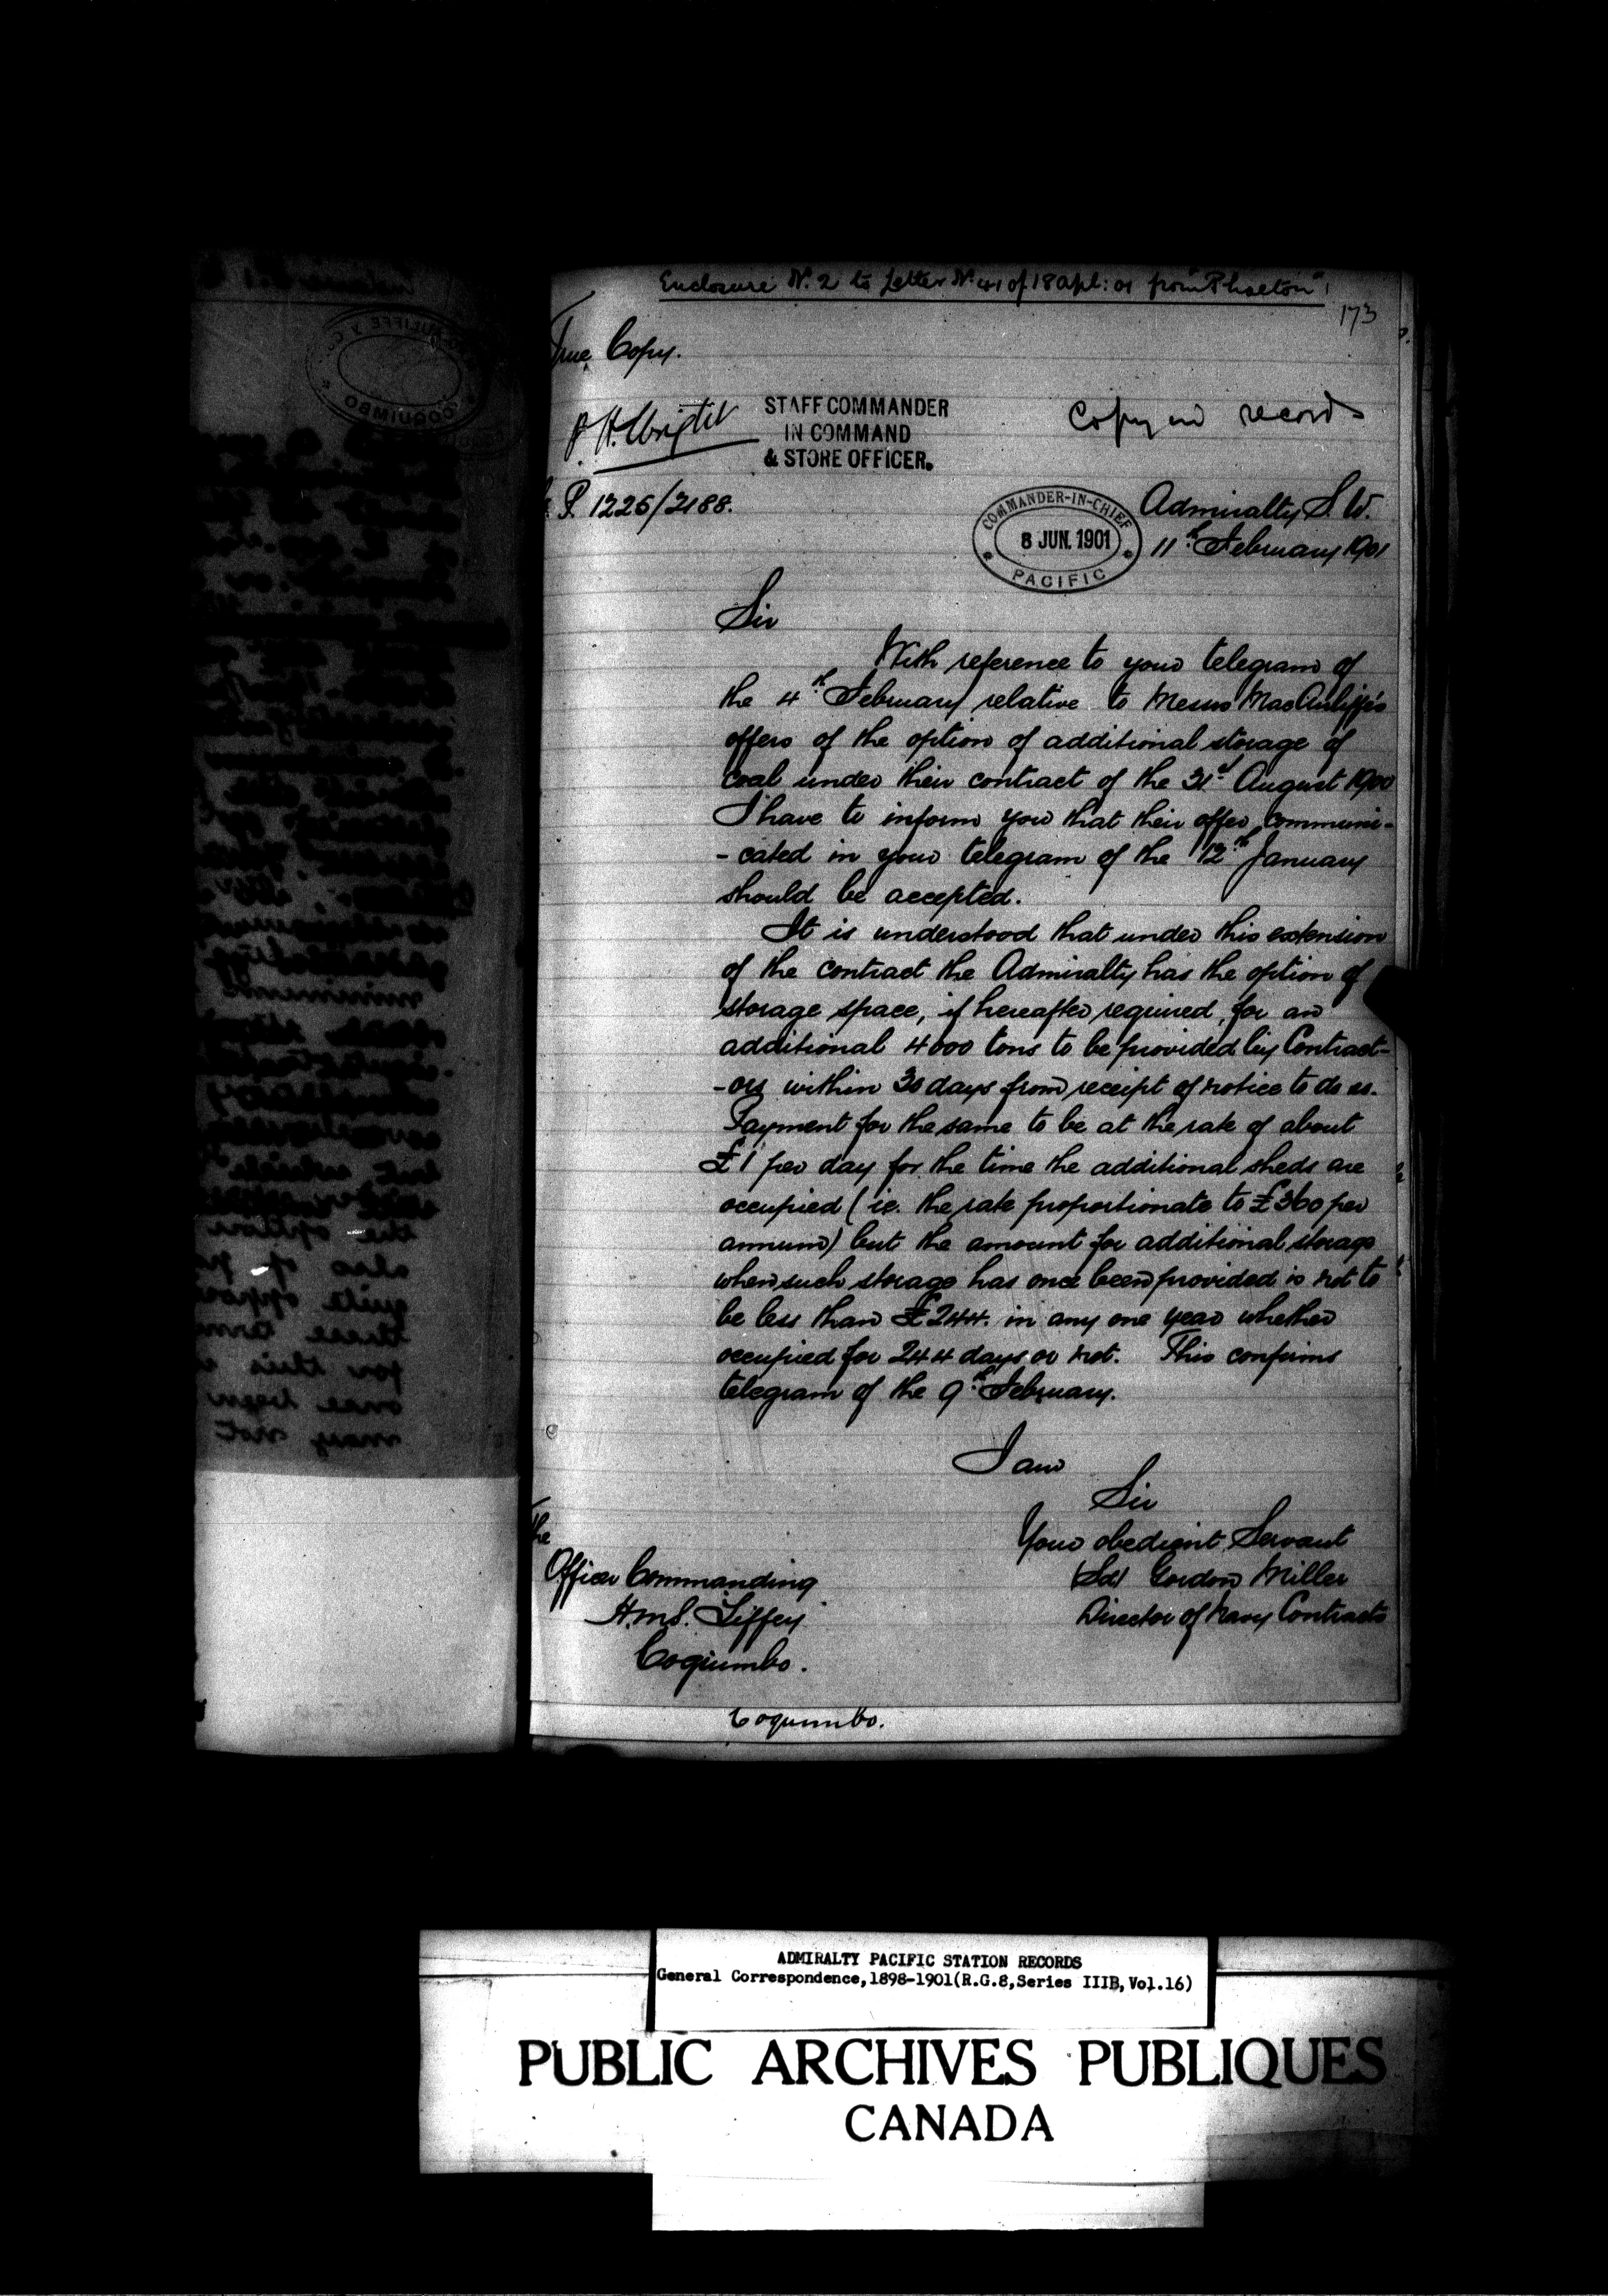 Enclosure No. 2 to Letter No 41 of 18 Apl: 01 from "Phaeton"
173
True Copy.
STAFF COMMANDER
IN COMMAND
& STORE OFFICER.
Copy in records
P. 1226/2188.
COMMANDER-IN-CHIEF
8 JUN. 1901
PACIFIC
Admiralty S.W.
11th February 1901
Sir
With reference to your telegram of
the 4th February relative to Messrs MacAuliffe's
offers of the option of additional storage of
coal under their contract of the 31st August 1900
I have to inform you that their offer communi-
-cated in your telegram of the 12th January
should be accepted.
It is understood that under this extension
of the contract the Admiralty has the option of
storage space, if hereafter required, for an
additional 4000 tons to be provided by Contract-
-ors within 30 days from receipt of notice to do so.
Payment for the same to be at the rate of about
£1 per day for the time the additional sheds are
occupied (ie. the rate proportionate to £360 per
annum) but the amount for additional storage
when such storage has once been provided is not to
be less than £244. in any one year whether
occupied for 244 days or not. This confirms
telegram of the 9th February.
I am
Sir
Your obedient Servant
(Sd) Gordon Miller
Director of Navy Contracts
The
Officer Commanding
H.M.S. Liffey
Coquimbo.
Coquimbo.
ADMIRALTY PACIFIC STATION RECORDS
General Correspondence,1898-1901(R.G.8,Series IIIB,Vol.16)
PUBLIC ARCHIVES PUBLIQUES
CANADA